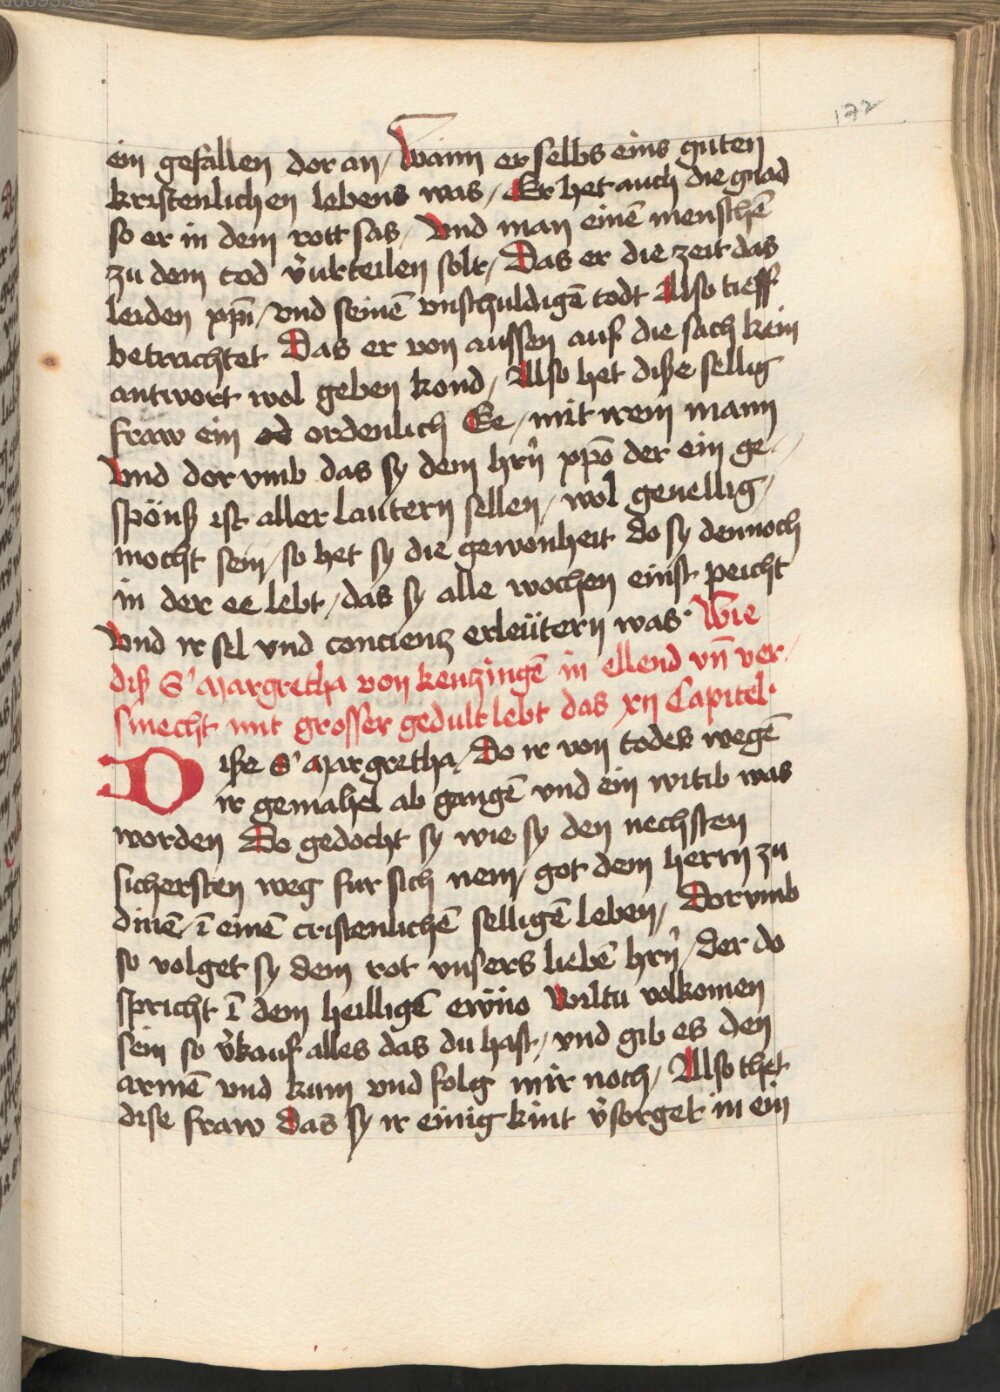 172
ein gefallen dor an / Wann er selbs eins guten
kristenlichen lebens was / Er het auch die gnad
so er in dem rott sas / Vnd man einē menschē
zu dem tod v̈urteilen solt / Das er die zeit das
leiden xpī / vnd seinē vnschuldigē todt Also tieff
betrachtet Das er von aussen auf die sach kein
antwort wol geben kond / Also het diße sellig
fraw ein ordenlich Ee / mit irem mann
Vnd dor vmb das sy dem hrn̄ xpō der ein ge-
spönß ist aller lautern sellen / wol genellig /
mocht sein / so het sy die gewonheit do sy dennoch
in der ee lebt / das sy alle wochen einst peicht
Vnd ir sel vnd concienz erleütern was · Wie
diß S' Margretha von kenzingē in ellend vn̄ ver /
smecht mit grosser gedult lebt das xij Capitel ·
Diße S' Margretha / Do ir von todes wegē
ir gemahel ab gangē vnd ein witib was
worden Do gedocht sy wie sy den nechsten
sichersten weg fur sich nem / got dem herrn zu
dinē / ī einē cristenlichē selligē leben / Dorvmb
so volget sy dem rot vnsers liebē hrn̄ / der do
spricht ī dem heilligē ewn̄io Wiltu volkomen
sein so v̈kauf alles das du hast / vnd gib es den
armē vnd kum vnd folg mir noch / Also thet
dise fraw das sy ir einig kint v̈sorget in ein